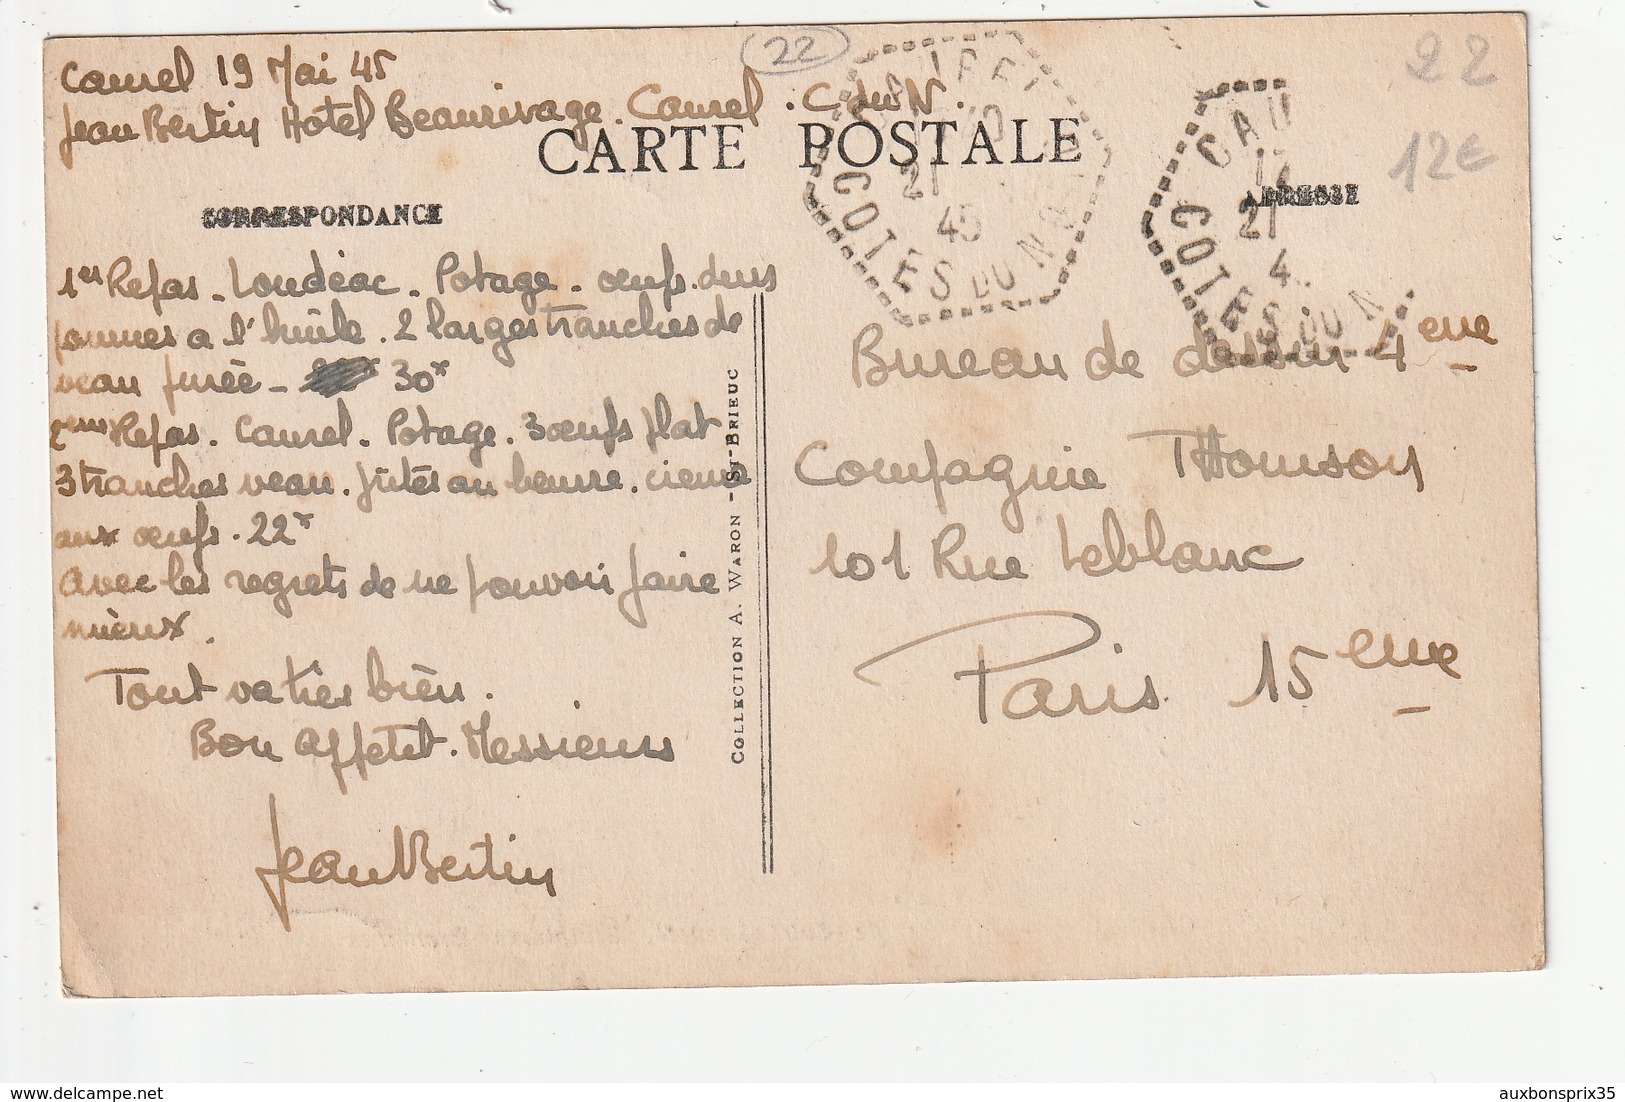 Caurel 19 Mai 45
Jean Bertin Hotel Beaurivage. Caurel. C. du N.
22
22
12€
CARTE POSTALE
CORRESPONDANCE
ADRESSE
CAUREL
10
21
45
COTES DU NORD
CAU
17
21
4
COTES DU N
1er Repas. Loudéac. Potage. œufs durs
pommes a l'huile. 2 larges tranches de
veau purée - 30*
2eme Repas. Caurel. Potage. 3 œufs plat
3 tranches veau. frites au beurre. creme
aux œufs. 22*
avec les regrets de ne pouvoir faire
mieux.
Tout va très bien.
Bon appetit. Messieurs
Jean Bertin
COLLECTION A. WARON - ST-BRIEUC
Bureau de dessin 4eme
Compagnie Thomson
101 Rue Leblanc
Paris. 15eme
delcampe.net
auxbonsprix35